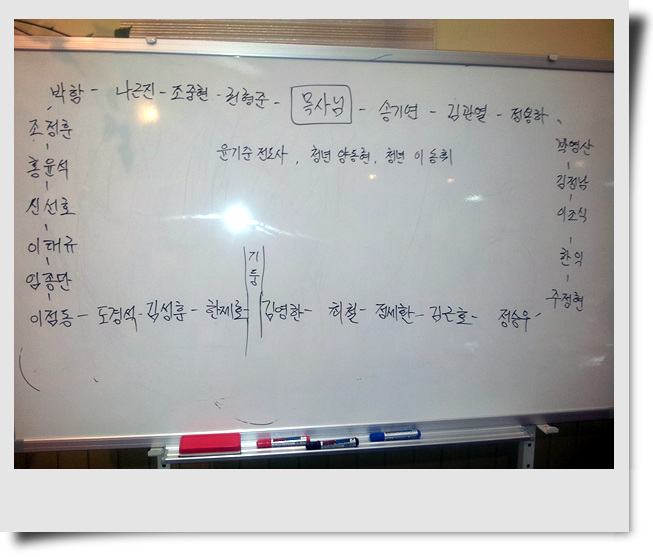 박함 - 나근진 - 조중현 - 권형준 - 목사님 - 송기연 - 김관열 - 정용하
조정훈
홍윤석
신선호
이태규
임종단
윤기준 전도사, 청년 양동현, 청년 이승휘
박영산
김정남
이조식
한익
주정현
기둥
이점동 - 도경석 - 김성훈 - 한제로 김영한 - 허철 - 정세환 - 김근호 - 정승우